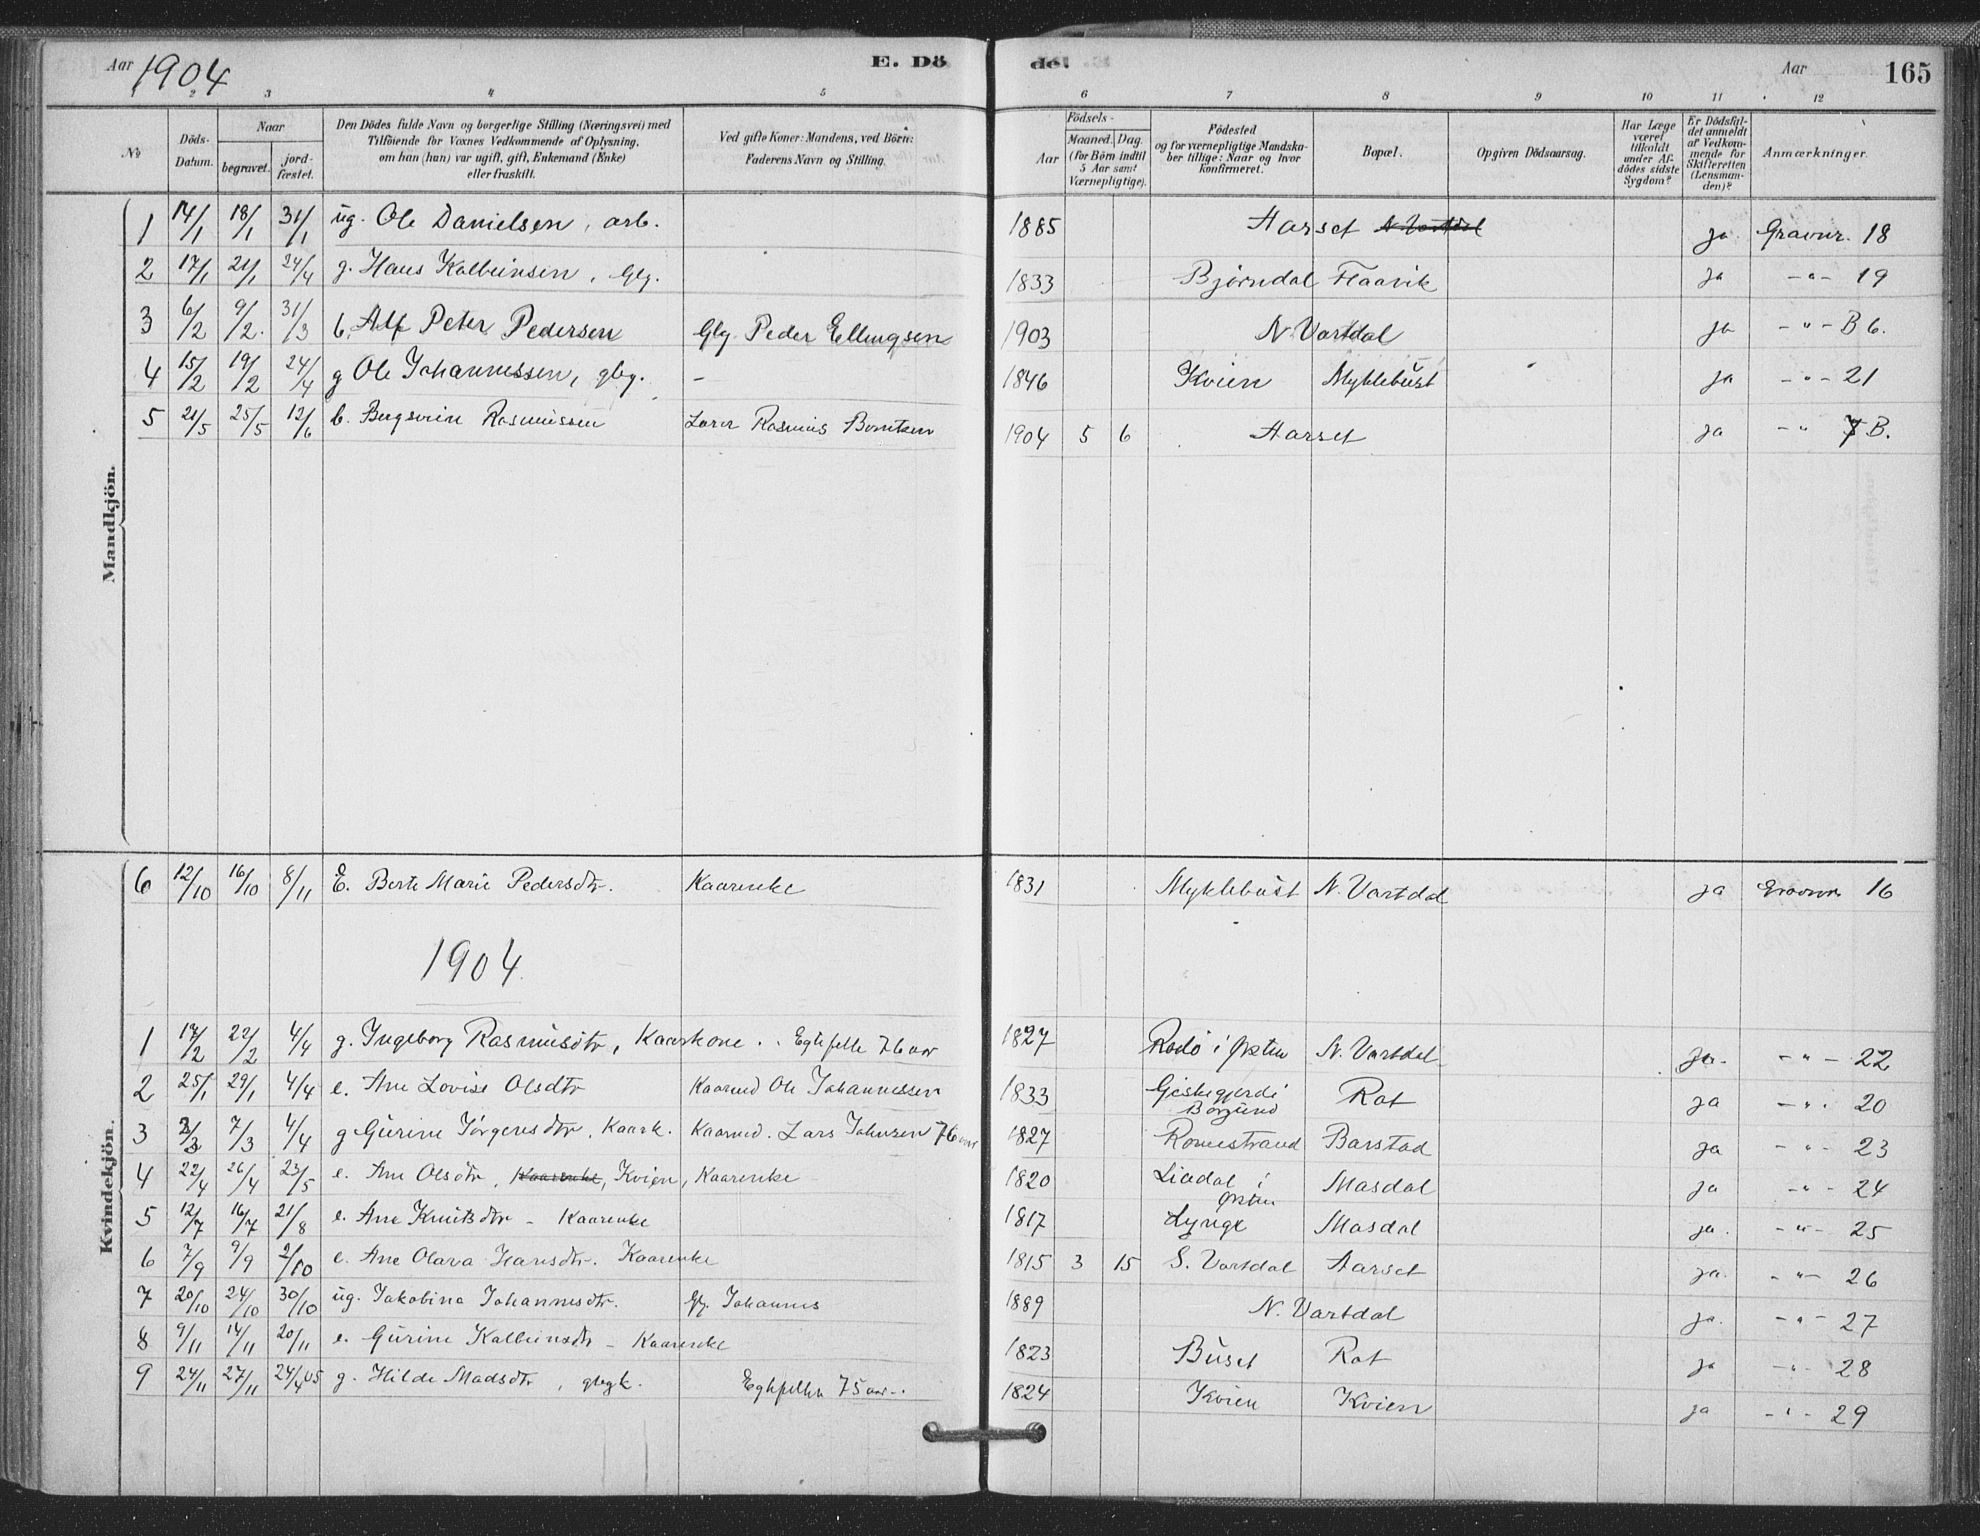 Aar 1904 E. Dö de. Aar 165
1 2 3 4 5 6 7 8 9 10 11 12
№ Döds-Datum. Naar begravet. jord-fæstet. Den Dödes fulde Navn og borgerlige Stilling (Næringsvei) med Tilföiende for Voxnes Vedkommende af Oplysning, om han (hun) var ugift, gift, Enkemand (Enke) eller fraskilt. Ved gifte Koner: Mandens, ved Börn: Faderens Navn og Stilling. Födsels- Aar Maaned. Dag. (for Börn indtil 5 Aar samt Værnepligtige). Födested og for værnepligtige Mandskaber tillige: Naar og hvor konfirmeret. Bopæl. Opgiven Dödsaarsag. Har Læge været tilkaldt under Afdödes sidste Sygdom? Er Dödsfaldet anmeldt af Vedkommende for Skifteretten (Lensmanden)? Anmærkninger.
Mandkjön.
1 14/1 18/1 31/1 ug. Ole Danielsen, arb. 1885 Aarset N. Vartdal ja Gravnr. 18
2 17/1 21/1 24/4 g. Hans Kolbeinsen, Glg. 1833 Bjørndal Flaavik ja -"- 19
3 6/2 9/2. 31/3 b. Alf Peter Pedersen Glg. Peder Ellingsen 1903 N. Vartdal ja -"- B 6.
4 15/2 19/2 24/4 g Ole Johannessen, gbg. - 1846 Kvien Myklebust ja -"- 21
5 21/5 25/5 12/6 b. Bergsvein Rasmussen Lærer Rasmus Berntsen 1904 5 6 Aarset ja -" 7 B.
Kvindekjön.
6 12/10 16/10 8/11 E. Berte Marie Pedersdtr. Kaarenke 1831 Myklebust N. Vartdal ja Gravnr 16
1904.
1 17/2 22/2 4/4 g. Ingeborg Rasmusdtr, Kaarkone. Egtefelle 76 aar 1827 i Ørsten N. Vartdal ja. -"- 22
2 25/1 29/1 4/4 e. Ane Lovise Olsdtr Kaarmd Ole Johannessen 1833 Giskegjerde i Borgund Rot ja -"- 20
3 3/3 7/3 4/4 g Gurine Jørgensdtr, Kaark. Kaarmd. Lars Johnsen 76 aar 1827 Romestrand Barstad ja -"- 23
4 22/4 26/4 23/5 e. Ane Olsdtr, Kaarenke, Kvien, Kaarenke 1820 Liadal i Ørsten Masdal ja -"- 24
5 12/7 16/7 21/8 e. Ane Knutsdtr - Kaarenke 1817 Lynge Masdal ja. -"- 25
6 7/9 9/9 2/10 e. Ane Olava Hansdtr. Kaarenke 1815 3 15 S. Vartdal Aarset ja. -"- 26
7 20/10 24/10 30/10 ug. Jakobina Johannesdtr. Glg. Johannes 1889 N. Vartdal ja. -"- 27
8 9/11 14/11 20/11 e. Gurine Kolbeinsdtr - Kaarenke 1823 Buset Rot ja -"- 28
9 24/11 27/11 24/4 05 g. Hilde Madsdtr, gbgk. Egtefelle 75 aar. 1824 Kvien Kvien ja -"- 29